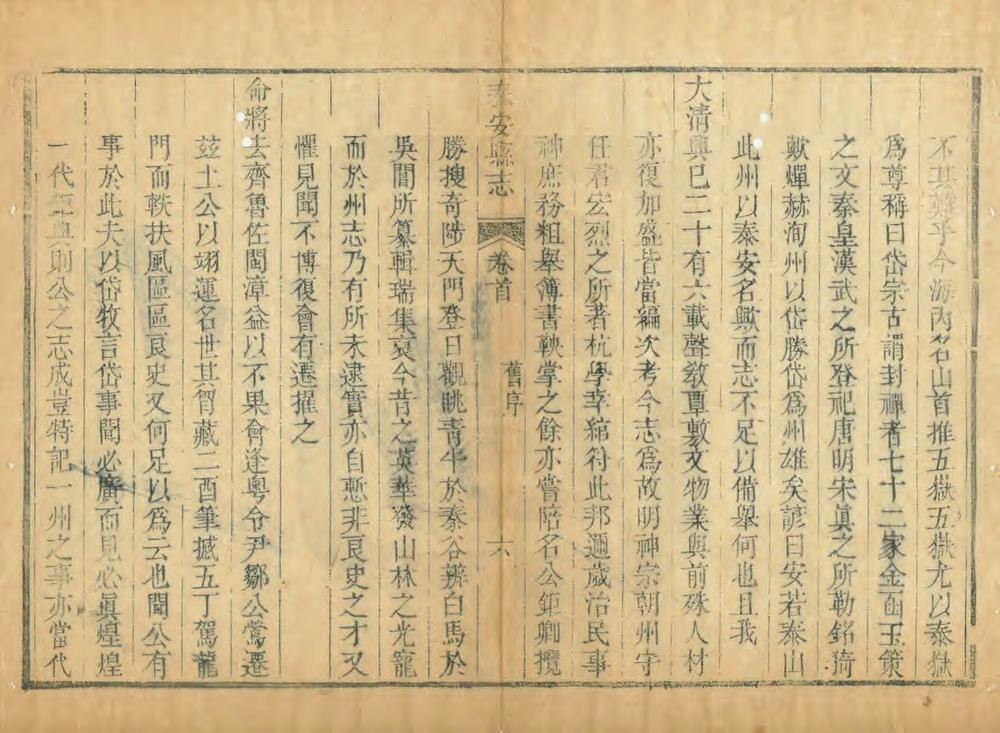 不其難乎今海內名山首推五嶽五嶽尤以泰嶽
爲尊稱曰岱宗古謂封禪者七十二家金函玉策
之文秦皇漢武之所登祀唐明宋眞之所勒銘猗
歟燀赫洵州以岱勝岱爲州雄矣諺曰安若泰山
此州以泰安名歟而志不足以備舉何也且我
大清興巳二十有六載聲敎覃敷文物業與前殊人材
亦復加盛皆當編次考今志爲故明神宗朝州守
任君宏烈之所著杭學幸綰符此邦邇歲治民事
神庶務粗舉簿書鞅掌之餘亦嘗陪名公鉅卿攬
泰安縣志 卷首 舊序 六
勝搜奇陟天門登日觀眺青牛於秦谷辨白馬於
吳閶所纂輯瑞集裒今昔之英華發山林之光寵
而於州志乃有所未逮實亦自慙非良史之才又
懼見聞不博復會有遷擢之
命將去齊魯佐閩漳益以不果會逢粵令尹鄒公鶯遷
茲土公以翊運名世其智藏二酉筆撼五丁駕龍
門而軼扶風區區良史又何足以爲云也聞公有
事於此夫以岱牧言岱事聞必廣而見必眞煌煌
一代鉅典則公之志成豈特記一州之事亦當代